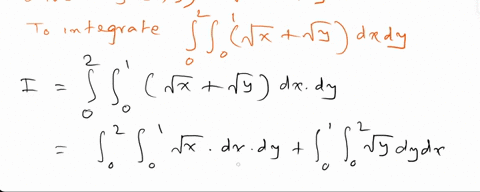 To integrate ∫₀² ∫₀¹ (√x + √y) dxdy
I = ∫₀² ∫₀¹ (√x + √y) dx.dy
= ∫₀² ∫₀¹ √x . dx . dy + ∫₀¹ ∫₀² √y dydx